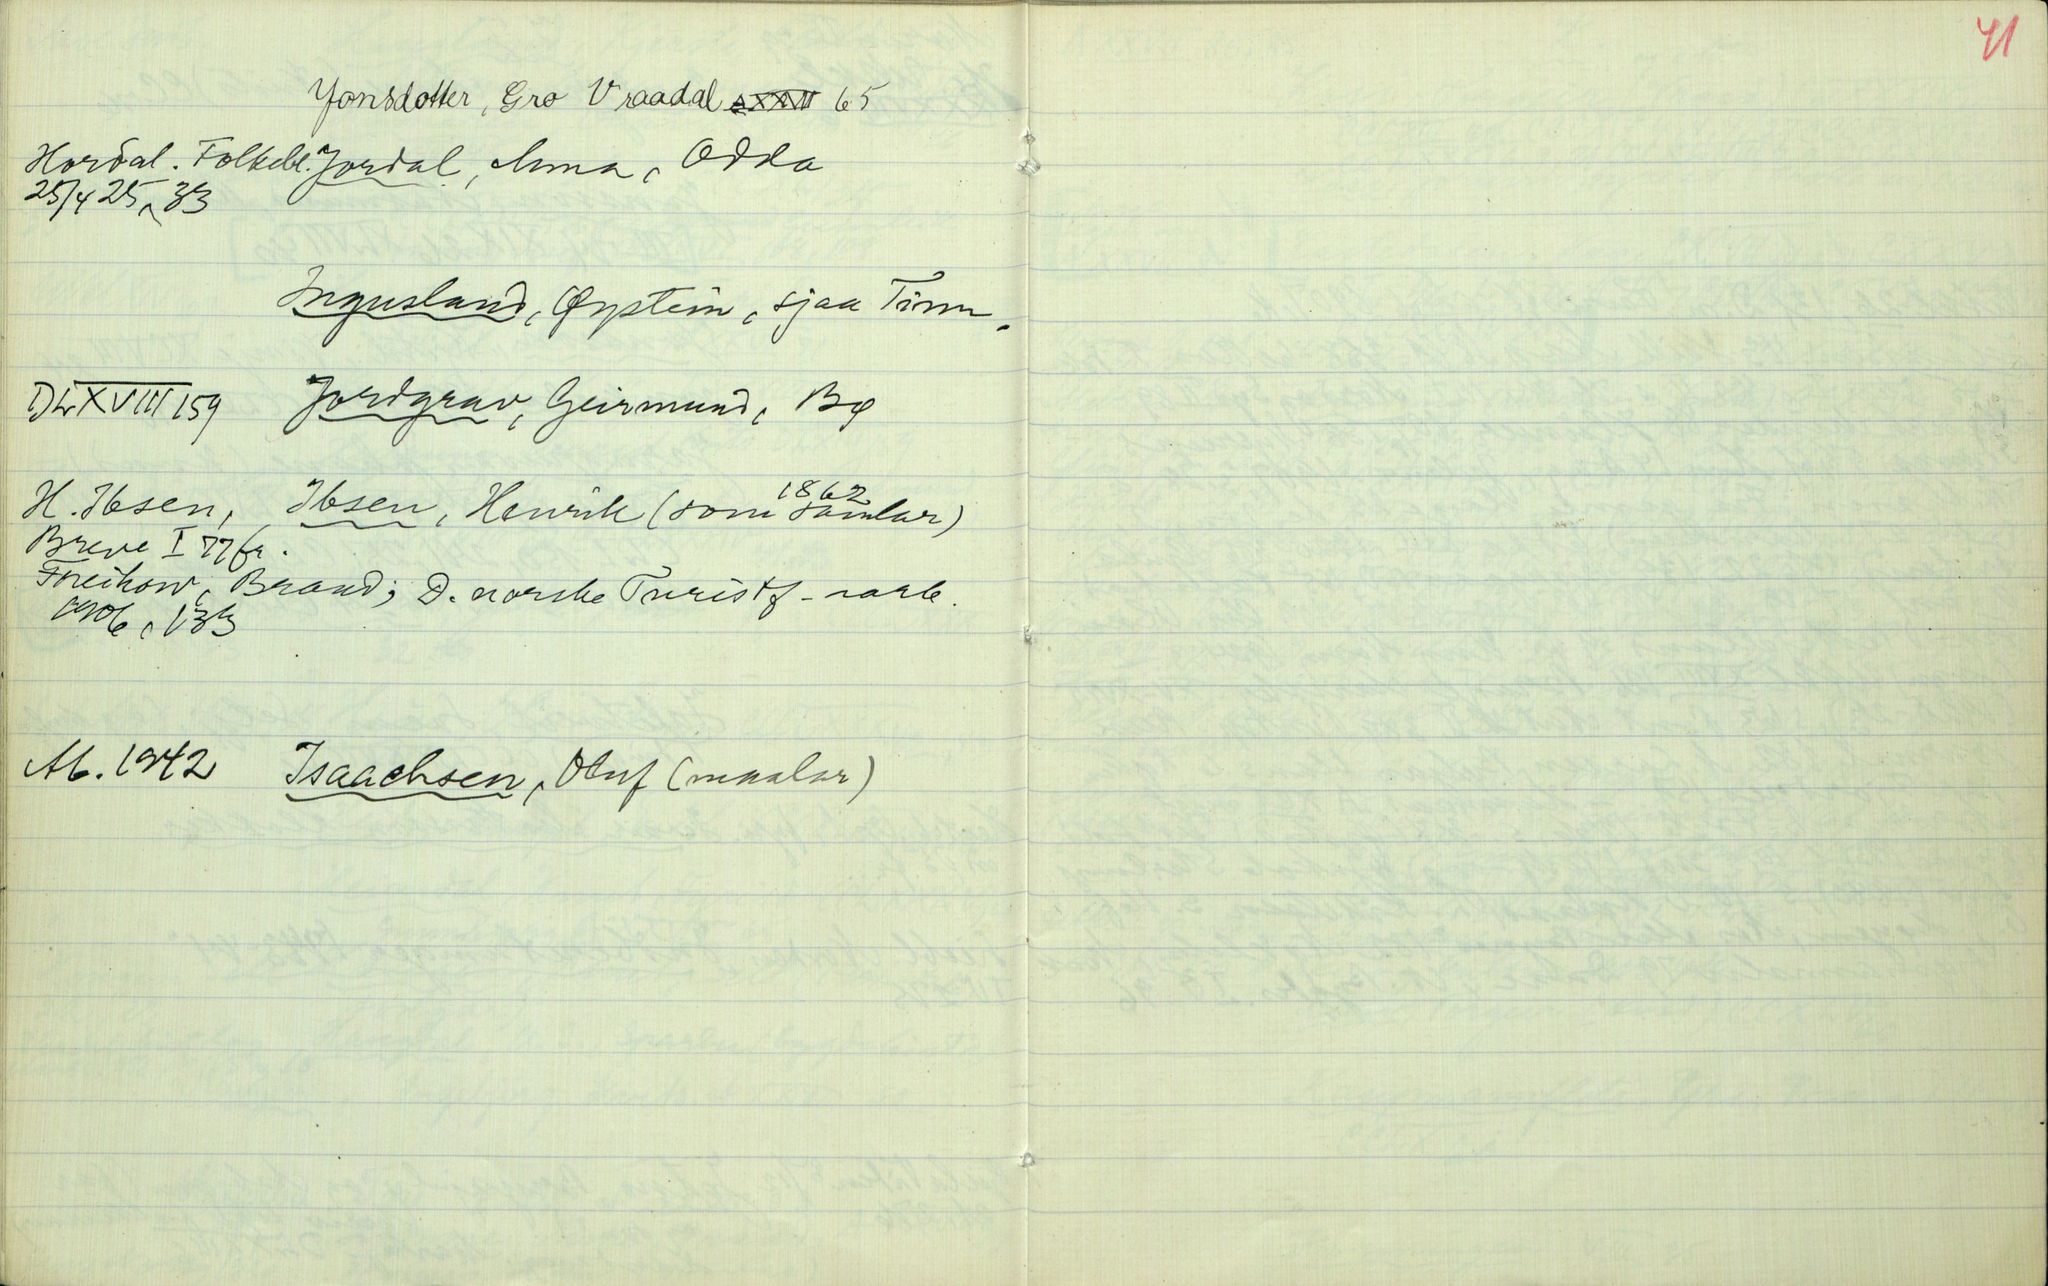 41
Jonsdotter, Gro Vraadal LXXVII 65
Hordal. Folkebl. Jordal, Anna, Odda
25/4 25, 33
Ingusland, Øystein, sjaa Tinn.
XVIII 159 Jordgrav, Geirmund, Bø
H. Ibsen, Ibsen, Henrik (som 1862 samlar)
Breve I 77 fr.
Freihow, Brand; D. norske Turistf-aarb.
1906, 133
Ab. 1942 Isaachsen, Oluf (maalar)